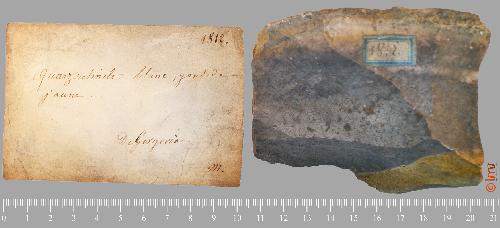 1812.
Quarz résinite blanc,
jaune.
De Gergovia
m.
1812.
0 1 2 3 4 5 6 7 8 9 10 11 12 13 14 15 16 17 18 19 20 21